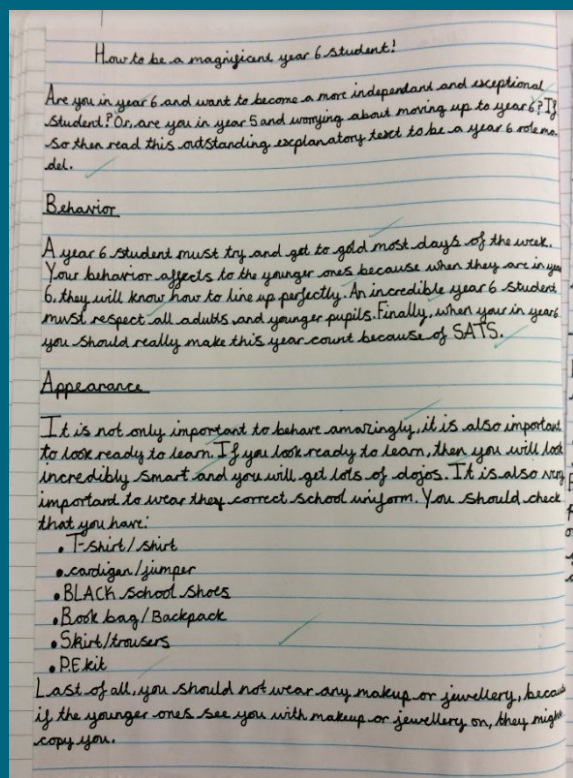 How to be a magnificent year 6 student!
Are you in year 6 and want to become a more independant and exceptional
student? Or, are you in year 5 and worrying about moving up to year 6? If
so then read this outstanding explanatory text to be a year 6 role mo-
del.
Behavior
A year 6 student must try and get to gold most days of the week.
Your behavior affects to the younger ones because when they are in year
6, they will know how to line up perfectly. An incredible year 6 student
must respect all adults and younger pupils. Finally, when your in year 6
you should really make this year count because of SATS.
Appearance
It is not only important to behave amazingly, it is also important
to look ready to learn. If you look ready to learn, then you will look
incredibly smart and you will get lots of dojos. It is also very
important to wear they correct school uniform. You should check
that you have:
• T-shirt/shirt
• cardigan/jumper
• BLACK school shoes
• Book bag/Backpack
• Skirt/trousers
• P.E kit
Last of all, you should not wear any makeup or jewellery, because
if the younger ones see you with makeup or jewellery on, they might
copy you.